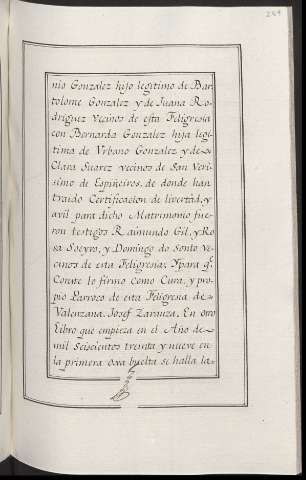 nio Gonzalez hijo legitimo de Bar
tolome Gonzalez y de Juana Ro-
driguez Vecinos de esta Feligresia
con Bernarda Gonzalez hija legi
tima de Vrbano Gonzalez y de
Clara Suarez vecinos de San Veri
simo de Espiñeiros, de donde han
traido Certificacion de libertad, y
avil para dicho Matrimonio fue-
ron testigos Raimundo Gil, y Ro
sa Soeyro, y Domingo do Sonto Ve
cinos de esta Feligresia; Ypara q.
Conste lo firmo como Cura, y pro
pio Parroco de esta Feligresia de
Valenzana. Josef Zarauza. En otro
Libro que empieza en el Año de
mil Seiscientos treinta y nueve en
la primera oxa buelta se halla la